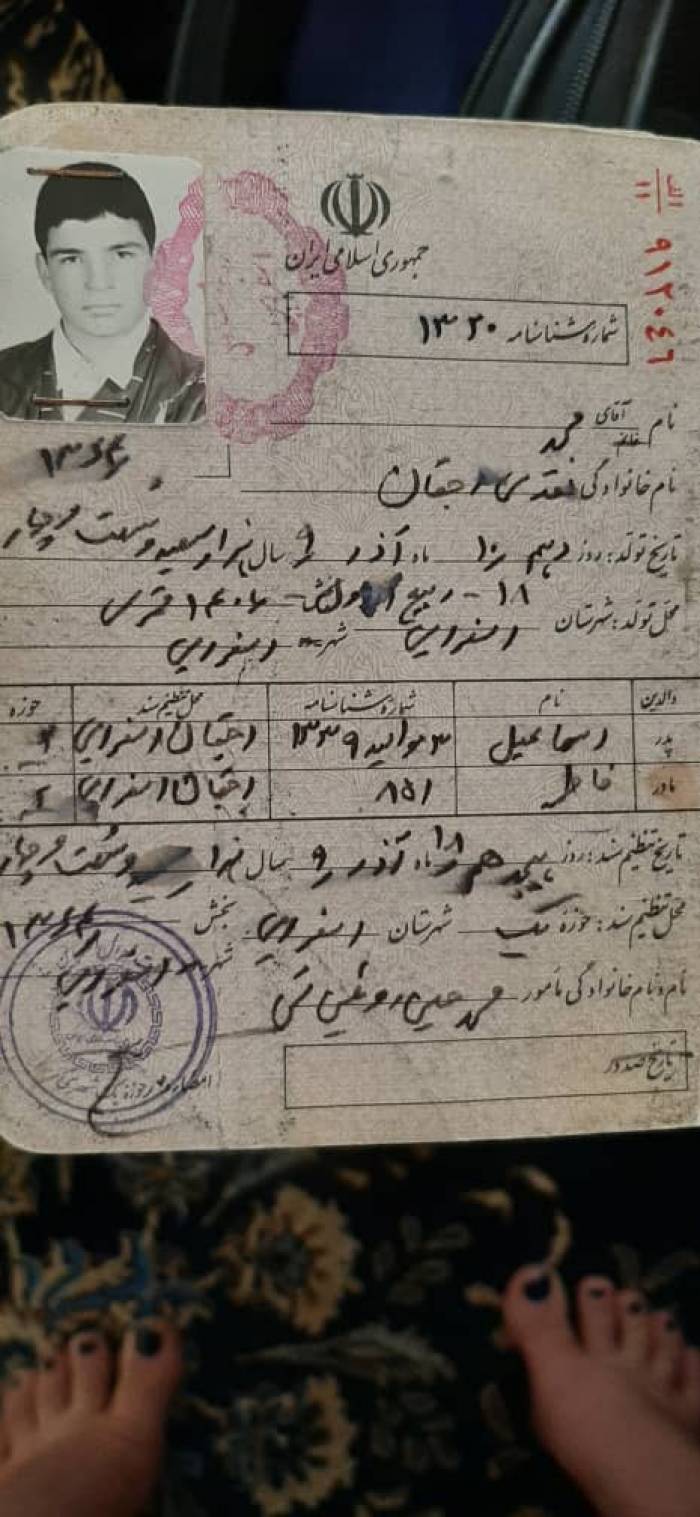 الف
۱۱
۹۱۲۰۴۶
جمهوری اسلامی ایران
شماره شناسنامه ۱۳۲۰
نام آقای خانم محمد
۱۳۶۴
نام خانوادگی نقدی اجقان
تاریخ تولد: روز دهم ۱۰ ماه آذر ۹ سال هزار و سیصد و شصت و چهار
۱۸ - ربیع الاول - ۱۴۰۶ قمری
محل تولد: شهرستان اسفراین شهر اسفراین
والدین نام شماره شناسنامه محل تنظیم سند حوزه
پدر اسماعیل ۳ موالید ۱۳۳۹ اجقان اسفراین
مادر فاطمه ۸۵۱ اجقان اسفراین
تاریخ تنظیم سند: روز هیجدهم ۱۸ ماه آذر ۹ سال هزار و سیصد و شصت و چهار
۱۳۶۴
محل تنظیم سند: حوزه یک شهرستان اسفراین بخش
شهر اسفراین
نام و نام خانوادگی مأمور محمد حسین
تاریخ صدور
امضاء و مهر حوزه